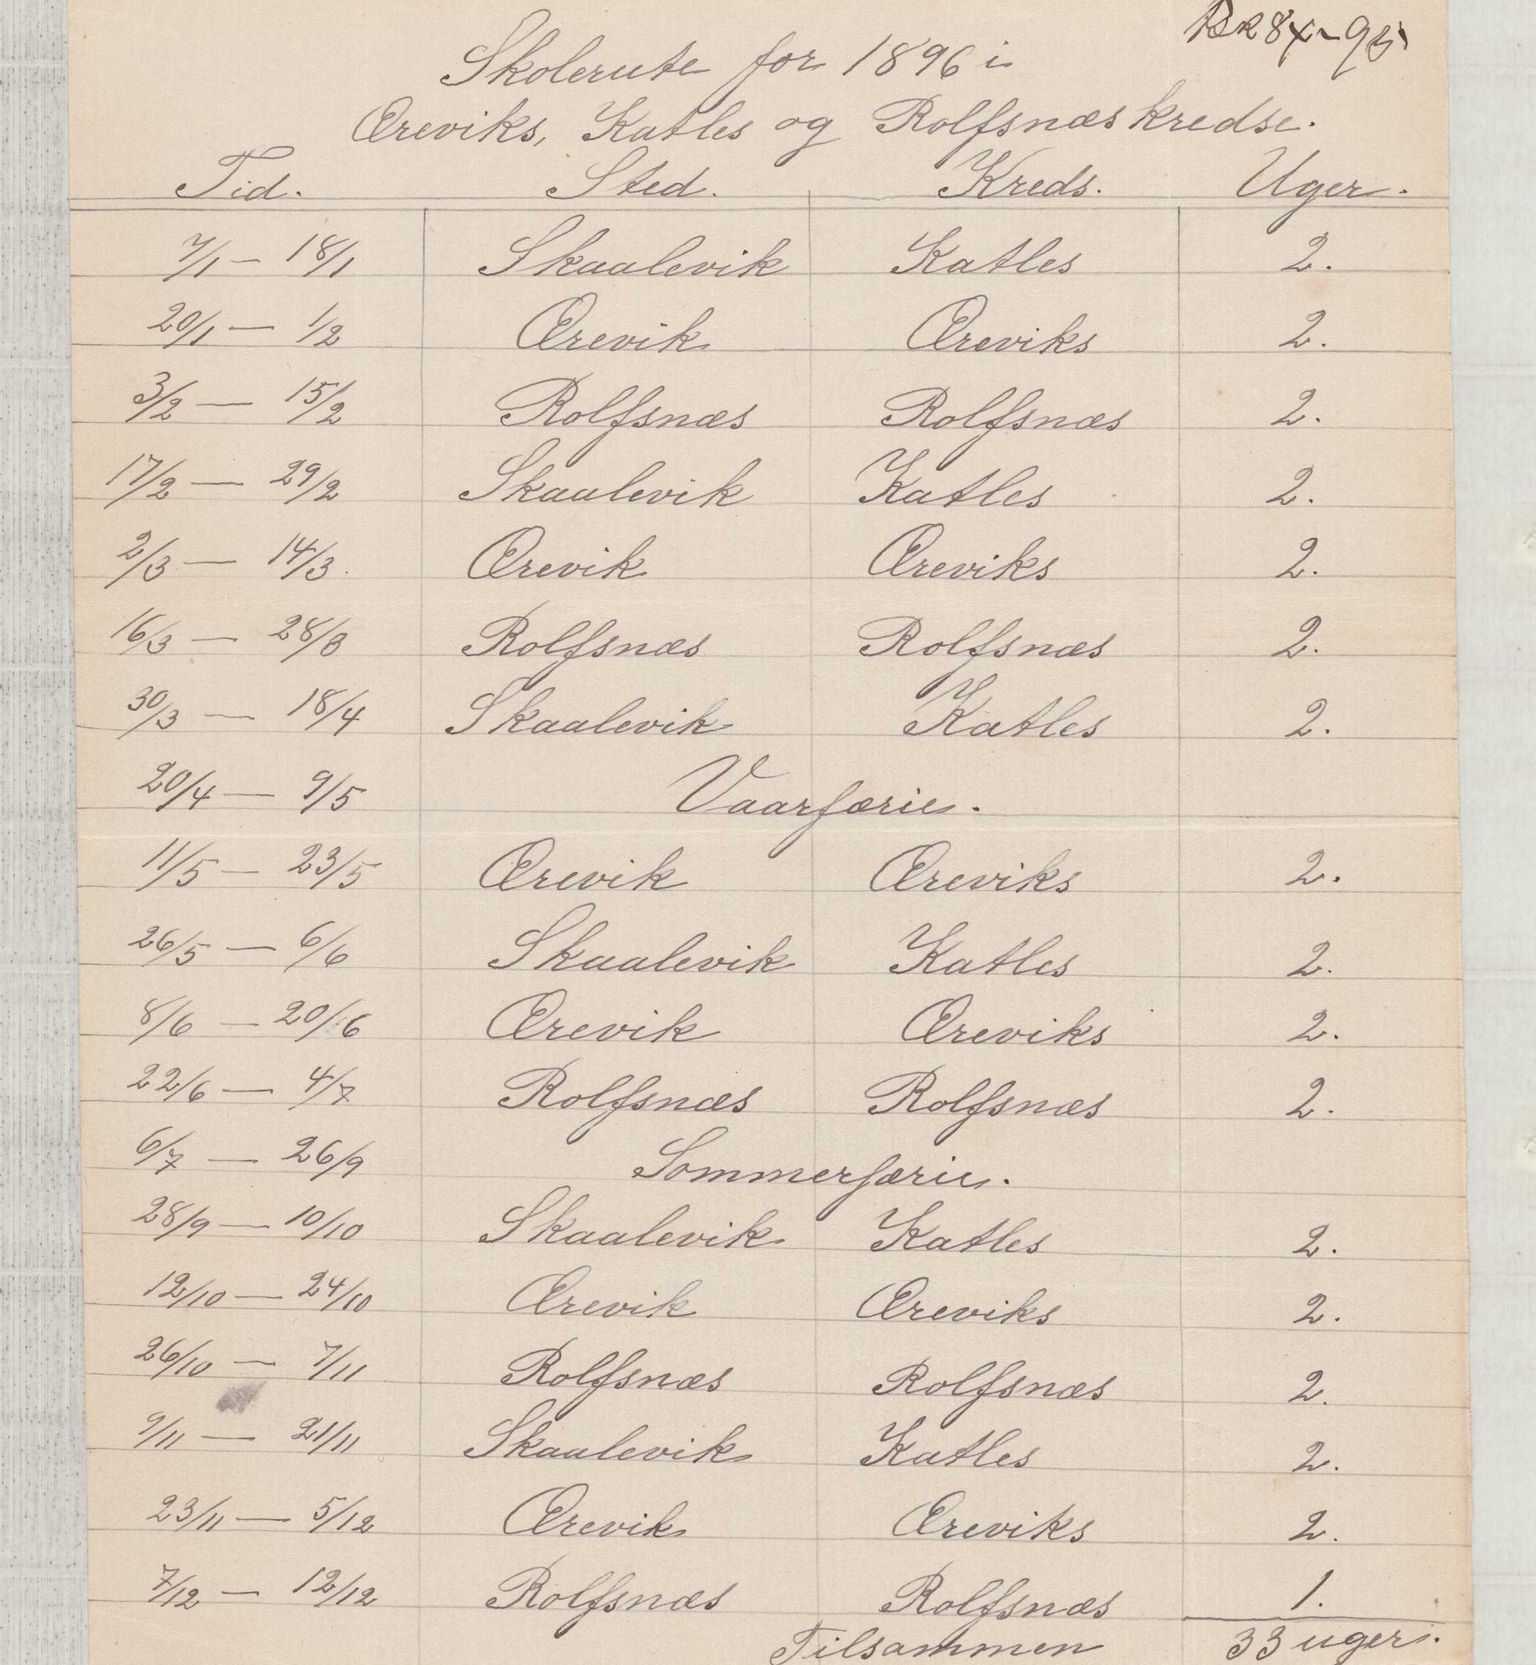 Skolerute for 1896 i
Œreviks, Katles og Rolfsnæs kredse.
Tid. Sted. Kreds. Uger.
7/1 — 18/1 Skaalevik Katles 2.
20/1 — 1/2 Œrevik Œreviks 2.
3/2 — 15/2 Rolfsnæs Rolfsnæs 2.
17/2 — 29/2 Skaalevik Katles 2.
2/3 — 14/3. Œrevik Œreviks 2.
16/3 — 28/3 Rolfsnæs Rolfsnæs 2.
30/3 — 18/4 Skaalevik Katles 2.
20/4 — 9/5 Vaarfærie.
11/5 — 23/5 Œrevik Œreviks 2.
26/5 — 6/6 Skaalevik Katles 2.
8/6 — 20/6 Œrevik Œreviks 2.
22/6 — 4/7 Rolfsnæs Rolfsnæs 2.
6/7 — 26/9 Sommerfærie.
28/9 — 10/10 Skaalevik Katles 2.
12/10 — 24/10 Œrevik Œreviks 2.
26/10 — 7/11 Rolfsnæs Rolfsnæs 2.
9/11 — 21/11 Skaalevik Katles 2.
23/11 — 5/12 Œrevik Œreviks 2.
7/12 — 12/12 Rolfsnæs Rolfsnæs 1.
Tilsammen 33 uger.